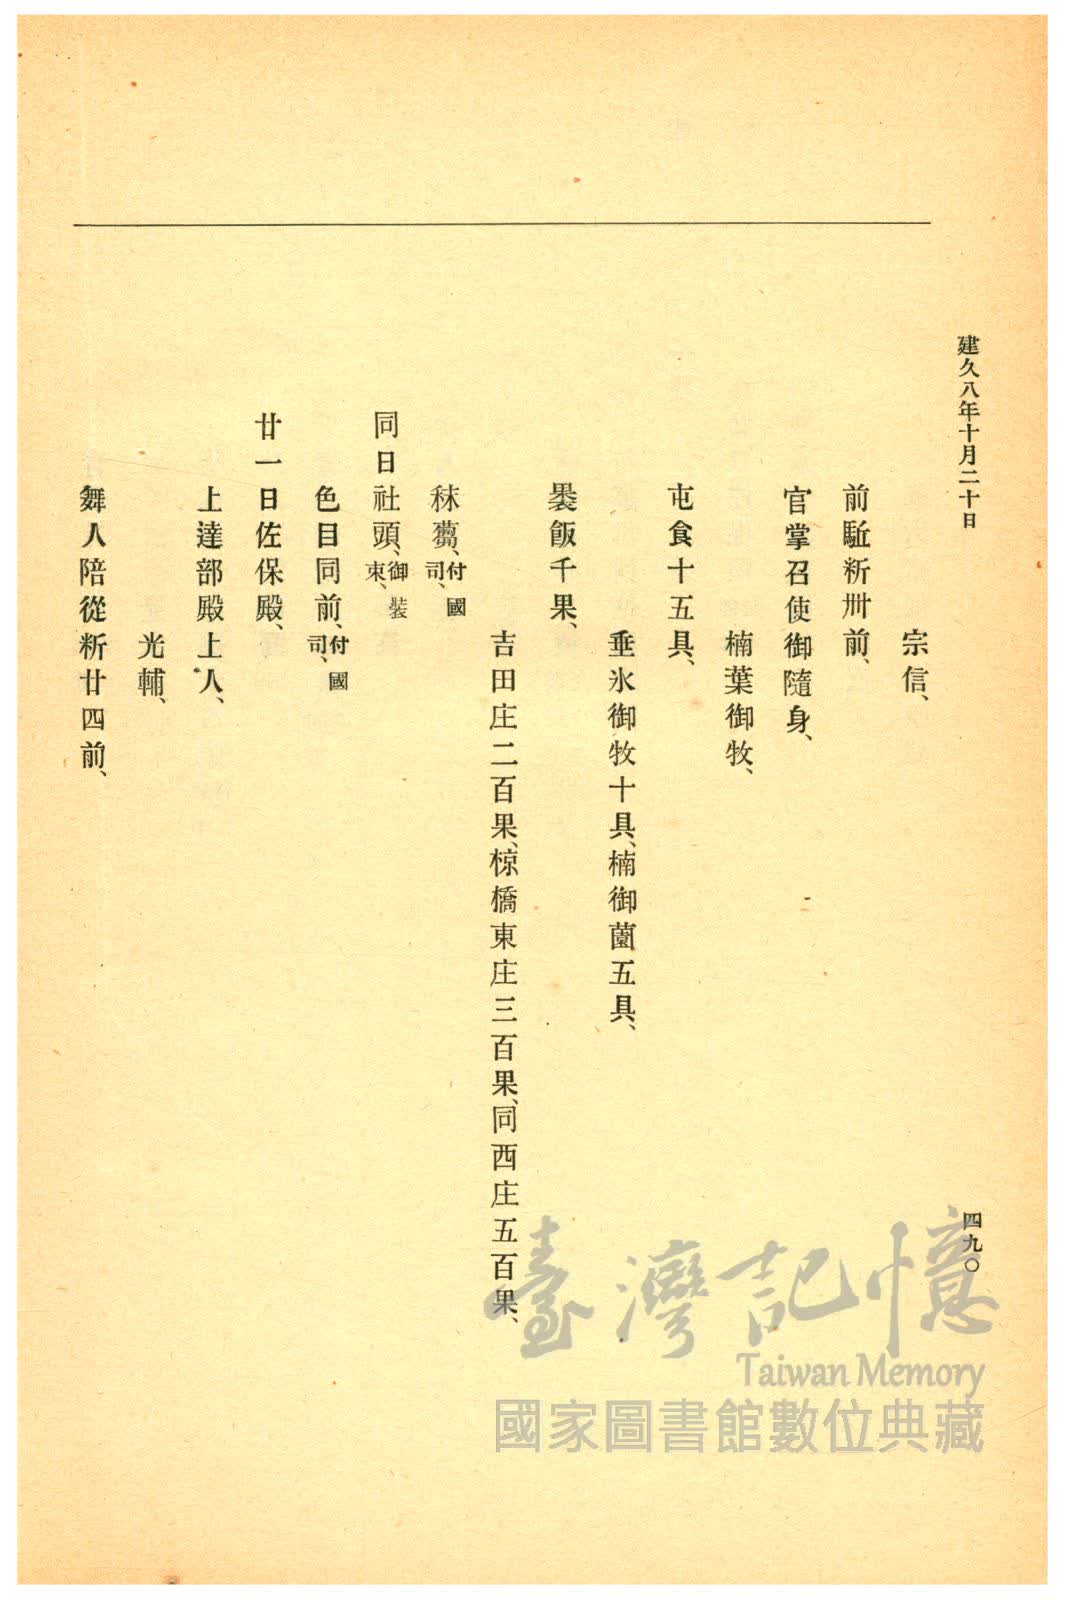 建久八年十月二十日
四九〇
宗信、
前駈䉼卅前、
官掌召使御隨身、
楠葉御牧、
屯食十五具、
垂氷御牧十具、楠御薗五具、
褁飯千果、
吉田庄二百果、椋橋東庄三百果、同西庄五百果、
秣蒭、付國司、
同日社頭、御裝束、
色目同前、付國司、
廿一日佐保殿、
上達部殿上人、
光輔、
舞人陪從䉼廿四前、
臺灣記憶
Taiwan Memory
國家圖書館數位典藏